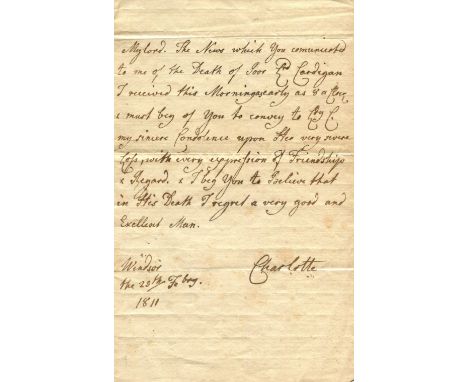 Mylord. The News which You comunicated
to me of the Death of Poor Ld Cardigan
I received this Morning early as 8 a Clock
& must beg of You to convey to Ldy C.
my sincere Condolence upon Her very severe
Loss, with every expression of Friendship
& Regard. & I beg You to believe that
in His Death I regret a very good and
Exellent Man.
Windsor
the 25th Febry.
1811
Charlotte